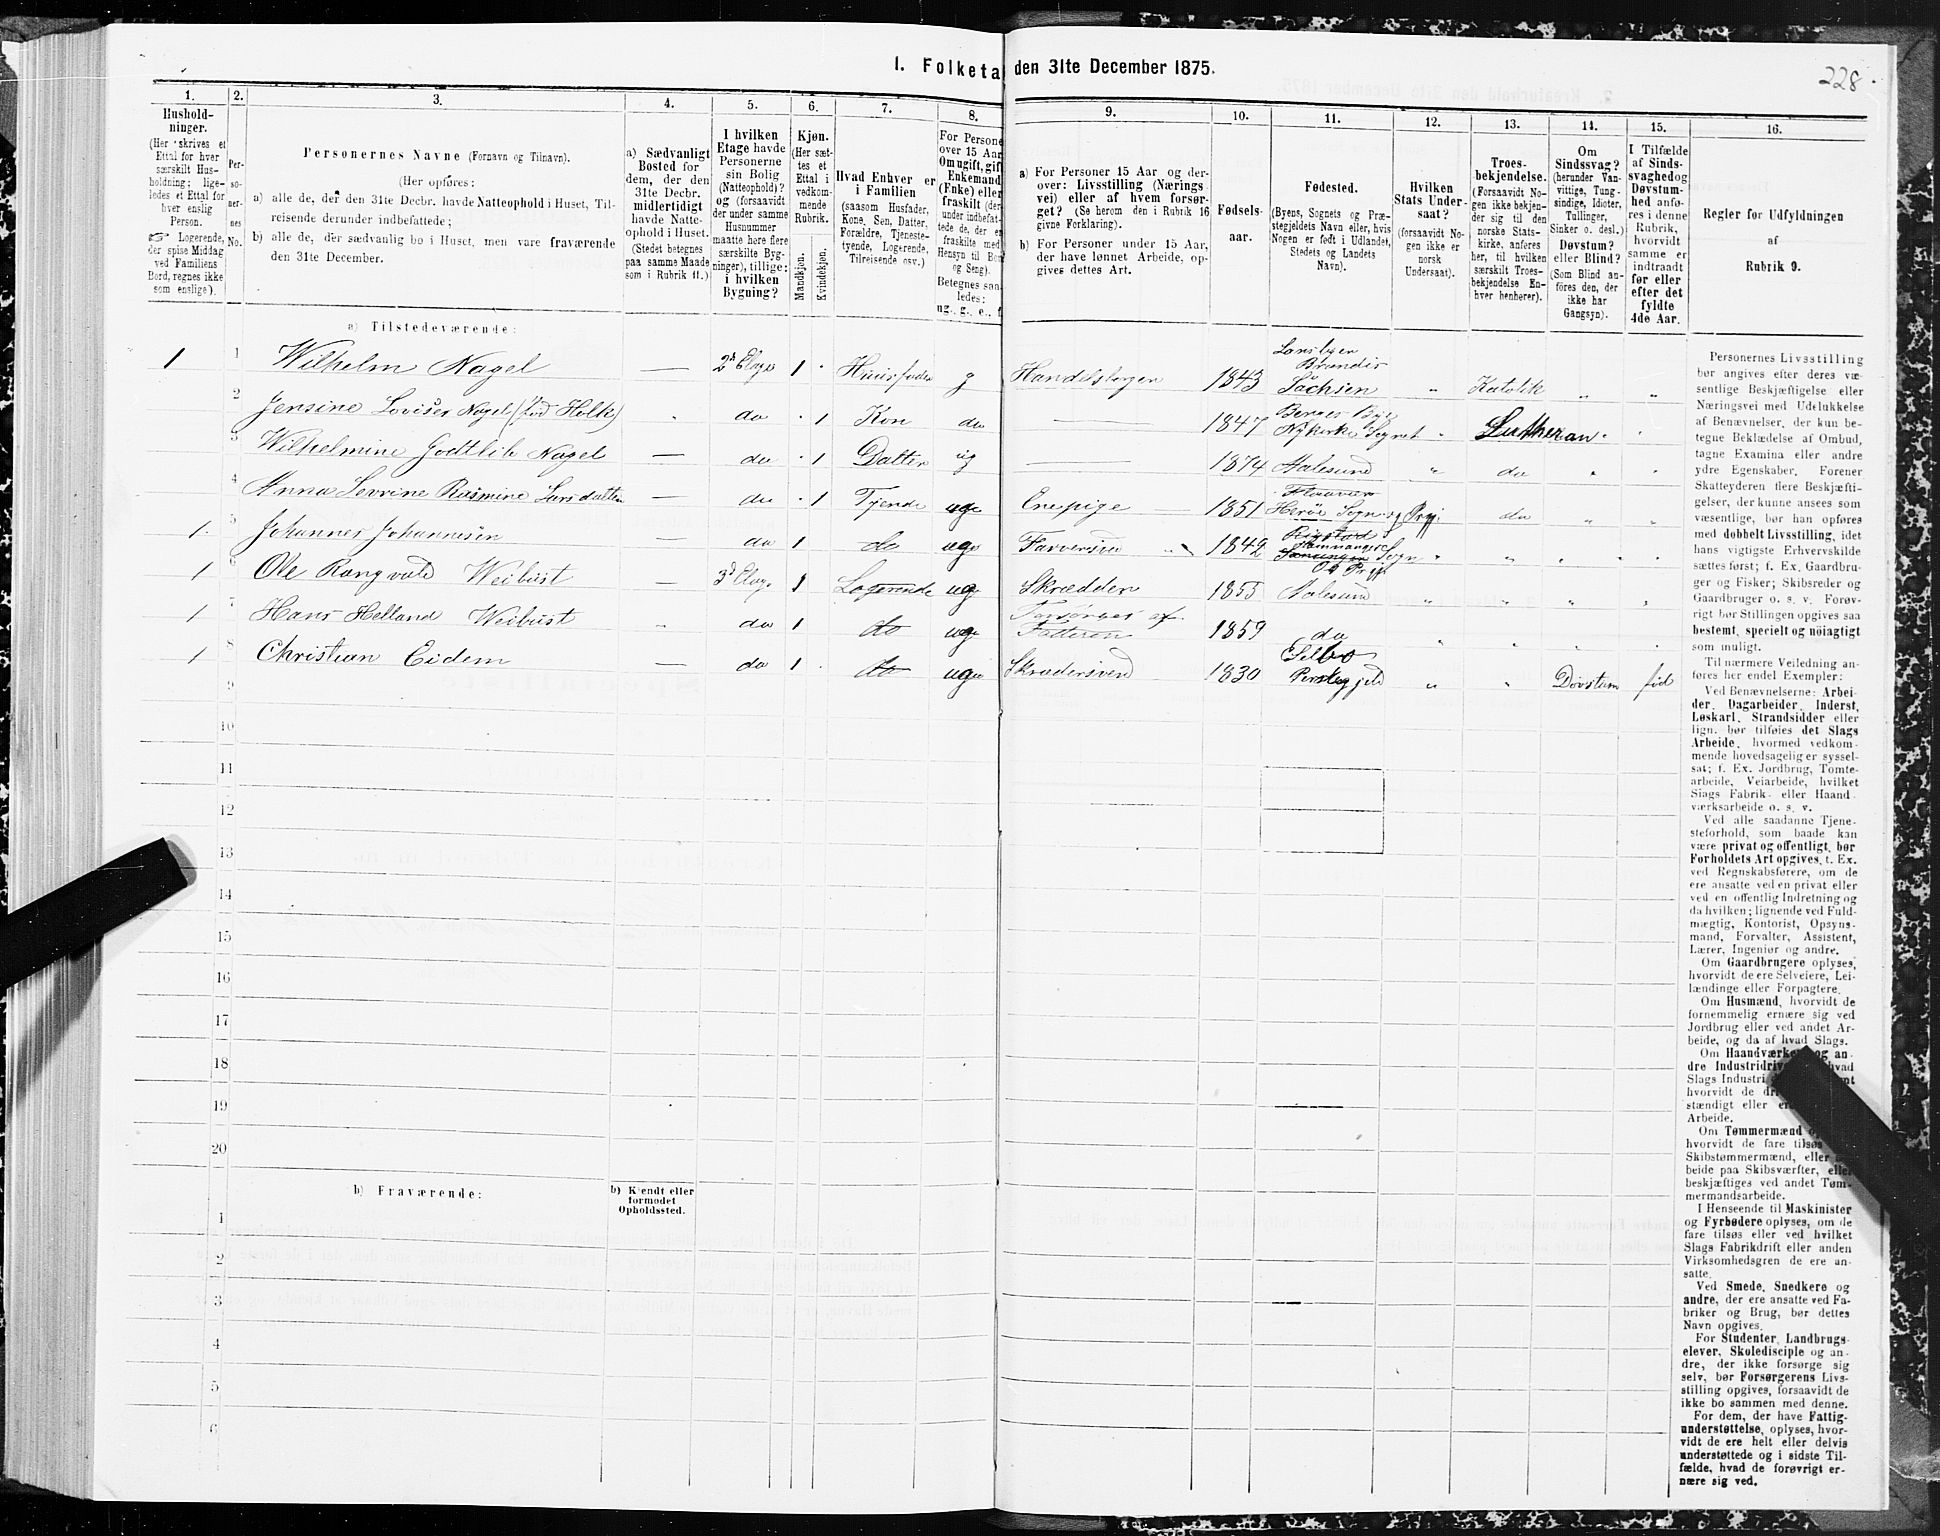 228
I. Folketal den 31te December 1875.
1. 2. 3. 4. 5. 6. 7. 8. 9. 10. 11. 12. 13. 14. 15. 16.
Hushold-
ninger.
(Her skrives et
Ettal for hver
særskilt Hus-
holdning; lige-
ledes et Ettal for
hver enslig
Person.
☞ Logerende,
der spise Middag
ved Familiens
Bord, regnes ikke
som enslige).
Per-
so-
ner-
nes
No.
Personernes Navne (Fornavn og Tilnavn).
(Her opføres:
a) alle de, der den 31te Decbr. havde Natteophold i Huset, Til-
reisende derunder indbefattede;
b) alle de, der sædvanlig bo i Huset, men vare fraværende
den 31te December.
a) Sædvanligt
Bosted for
dem, der den
31te Decbr.
midlertidigt
havde Natte-
ophold i Huset.
(Stedet betegnes
paa samme Maade
som i Rubrik 11.)
I hvilken
Etage havde
Personerne
sin Bolig
(Natteophold)?
og (forsaavidt
der under samme
Husnummer
maatte høre flere
særskilte Byg-
ninger), tillige:
i hvilken
Bygning?
Kjøn.
(Her sæt-
tes et
Ettal i
vedkom-
mende
Rubrik.
Mandkjøn.
Kvindekjøn.
Hvad Enhver er
i Familien
(saasom Husfader,
Kone, Søn, Datter,
Forældre, Tjeneste-
tyende, Logerende,
Tilreisende osv.)
For Persone
over 15 Aar
Om ugift, gift
Enkemand
(Enke) eller
fraskilt (der
under indbefat-
tede de, der e
fraskilte med
Hensyn til Bor
og Seng).
Betegnes saa
ledes:
ug., g., e., f.
a) For Personer 15 Aar og der-
over: Livsstilling (Nærings-
vei) eller af hvem forsør-
get? (Se herom den i Rubrik 16
givne Forklaring).
b) For Personer under 15 Aar,
der have lønnet Arbeide, op-
gives dettes Art.
Fødsels-
aar.
Fødested.
(Byens, Sognets og Præ-
stegjeldets Navn eller, hvis
Nogen er født i Udlandet,
Stedets og Landets
Navn).
Hvilken
Stats Under-
saat?
(forsaavidt No-
gen ikke er
norsk
Undersaat).
Troes-
bekjendelse.
(Forsaavidt No-
gen ikke bekjen-
der sig til den
norske Stats-
kirke, anføres
her, til hvilken
særskilt Troes-
bekjendelse En-
hver henhører).
Om
Sindssvag?
(herunder Van-
vittige, Tung-
sindige, Idioter,
Tullinger,
Sinker o. desl.)
Døvstum?
eller Blind?
(Som Blind an-
føres den, der
ikke har
Gangsyn).
I Tilfælde
af Sinds-
svaghed og
Døvstum-
hed anfø-
res i denne
Rubrik,
hvorvidt
samme er
indtraadt
før eller
efter det
fyldte
4de Aar.
Regler for Udfyldningen
af
Rubrik 9.
a) Tilstedeværende:
1 1 Wilhelm Nagel — 2d Etage 1 Huusfader g Handelsborger 1843 Sachsen " Katolik " "
2 Jensine Lovise Nagel (fød Holk) " do 1 Kone do — 1847 Bergens Bye Nykirke Sognet " Lutheran " "
3 Wilhelmine Godtlib Nagel — do 1 Datter ug — 1874 Aalesund " do " "
4 Anna Sevrine Rasmine Larsdatter — do 1 Tjende ug 1851 Herøe Sogn og Prgj. do " "
1 5 Johannes Johannesen do 1 do ug Farversvend 1842 Sogn " " " "
1 6 Ole Rangvald Weibust — 3d Etage 1 Logerende ug Skrædder 1855 Aalesund " " " "
1 7 Hans Helland Weibust " do 1 do ug Forsørges af Fatteren 1859 do " " " "
1 8 Christian Eidem — do 1 do ug Skrædersvend 1830 Selbo Prestegjeld " " Døvstum fød
9
10
11
12
13
14
15
16
17
18
19
20
b) Fraværende:
b) Kjendt eller
formodet
Opholdssted.
1
2
3
4
5
6
Personernes Livsstilling
bør angives efter deres væ-
sentlige Beskjæftigelse eller
Næringsvei med Udelukkelse
af Benævnelser, der kun be-
tegne Beklædelse af Ombud,
tagne Examina eller andre
ydre Egenskaber. Forener
Skatteyderen flere Beskjæfti-
gelser, der kunne ansees som
væsentlige, bør han opføres
med dobbelt Livsstilling, idet
hans vigtigste Erhvervskilde
sættes først; f. Ex. Gaardbru-
ger og Fisker; Skibsreder og
Gaardbruger o. s. v. Forøv-
rigt bør Stillingen opgives saa
bestemt, specielt og nöiagtigt
som muligt.
Til nærmere Veiledning an-
føres her endel Exempler:
Ved Benævnelserne: Arbei-
der, Dagarbeider, Inderst,
Løskarl, Strandsidder eller
lign. bør tilføies det Slags
Arbeide, hvormed vedkom-
mende hovedsagelig er syssel-
sat; f. Ex. Jordbrug, Tomte-
arbeide, Veiarbeide, hvilket
Slags Fabrik- eller Haand-
værksarbeide o. s. v.
Ved alle saadanne Tjene-
steforhold, som baade kan
være privat og offentligt, bør
Forholdets Art opgives, t. Ex.
ved Regnskabsførere, om de
ere ansatte ved en privat eller
ved en offentlig Indretning og
da hvilken; lignende ved Fuld-
mægtig, Kontorist, Opsyns-
mand, Forvalter, Assistent,
Lærer, Ingeniør og andre.
Om Gaardbrugere oplyses,
hvorvidt de ere Selveiere, Lei-
lændinge eller Forpagtere.
Om Husmænd, hvorvidt de
fornemmelig ernære sig ved
Jordbrug eller ved andet Ar-
beide, og da af hvad Slags.
Om Haandværkere og an-
dre Industridriv hvad
Slags Industri
hvorvidt de dri
stændigt eller e
Arbeide.
Om Tømmermænd
hvorvidt de fare tilsøs
Skibstømmermænd, eller
beide paa Skibsværfter, eller
beskjæftiges ved andet Tøm-
mermandsarbeide.
I Henseende til Maskinister
og Fyrbødere oplyses, om de
fare tilsøs eller ved hvilket
Slags Fabrikdrift eller anden
Virksomhedsgren de ere an-
satte.
Ved Smede, Snedkere og
andre, der ere ansatte ved Fa-
briker og Brug, bør dettes
Navn opgives.
For Studenter, Landbrugs-
elever, Skoledisciple og an-
dre, der ikke forsørge sig
selv, bør Forsørgerens Livs-
stilling opgives, forsaavidt de
ikke bo sammen med denne.
For dem, der have Fattig-
understøttelse, oplyses, hvor-
vidt de ere helt eller delvis
understøttede og i sidste Til-
fælde, hvad de forøvrigt er-
nære sig ved.